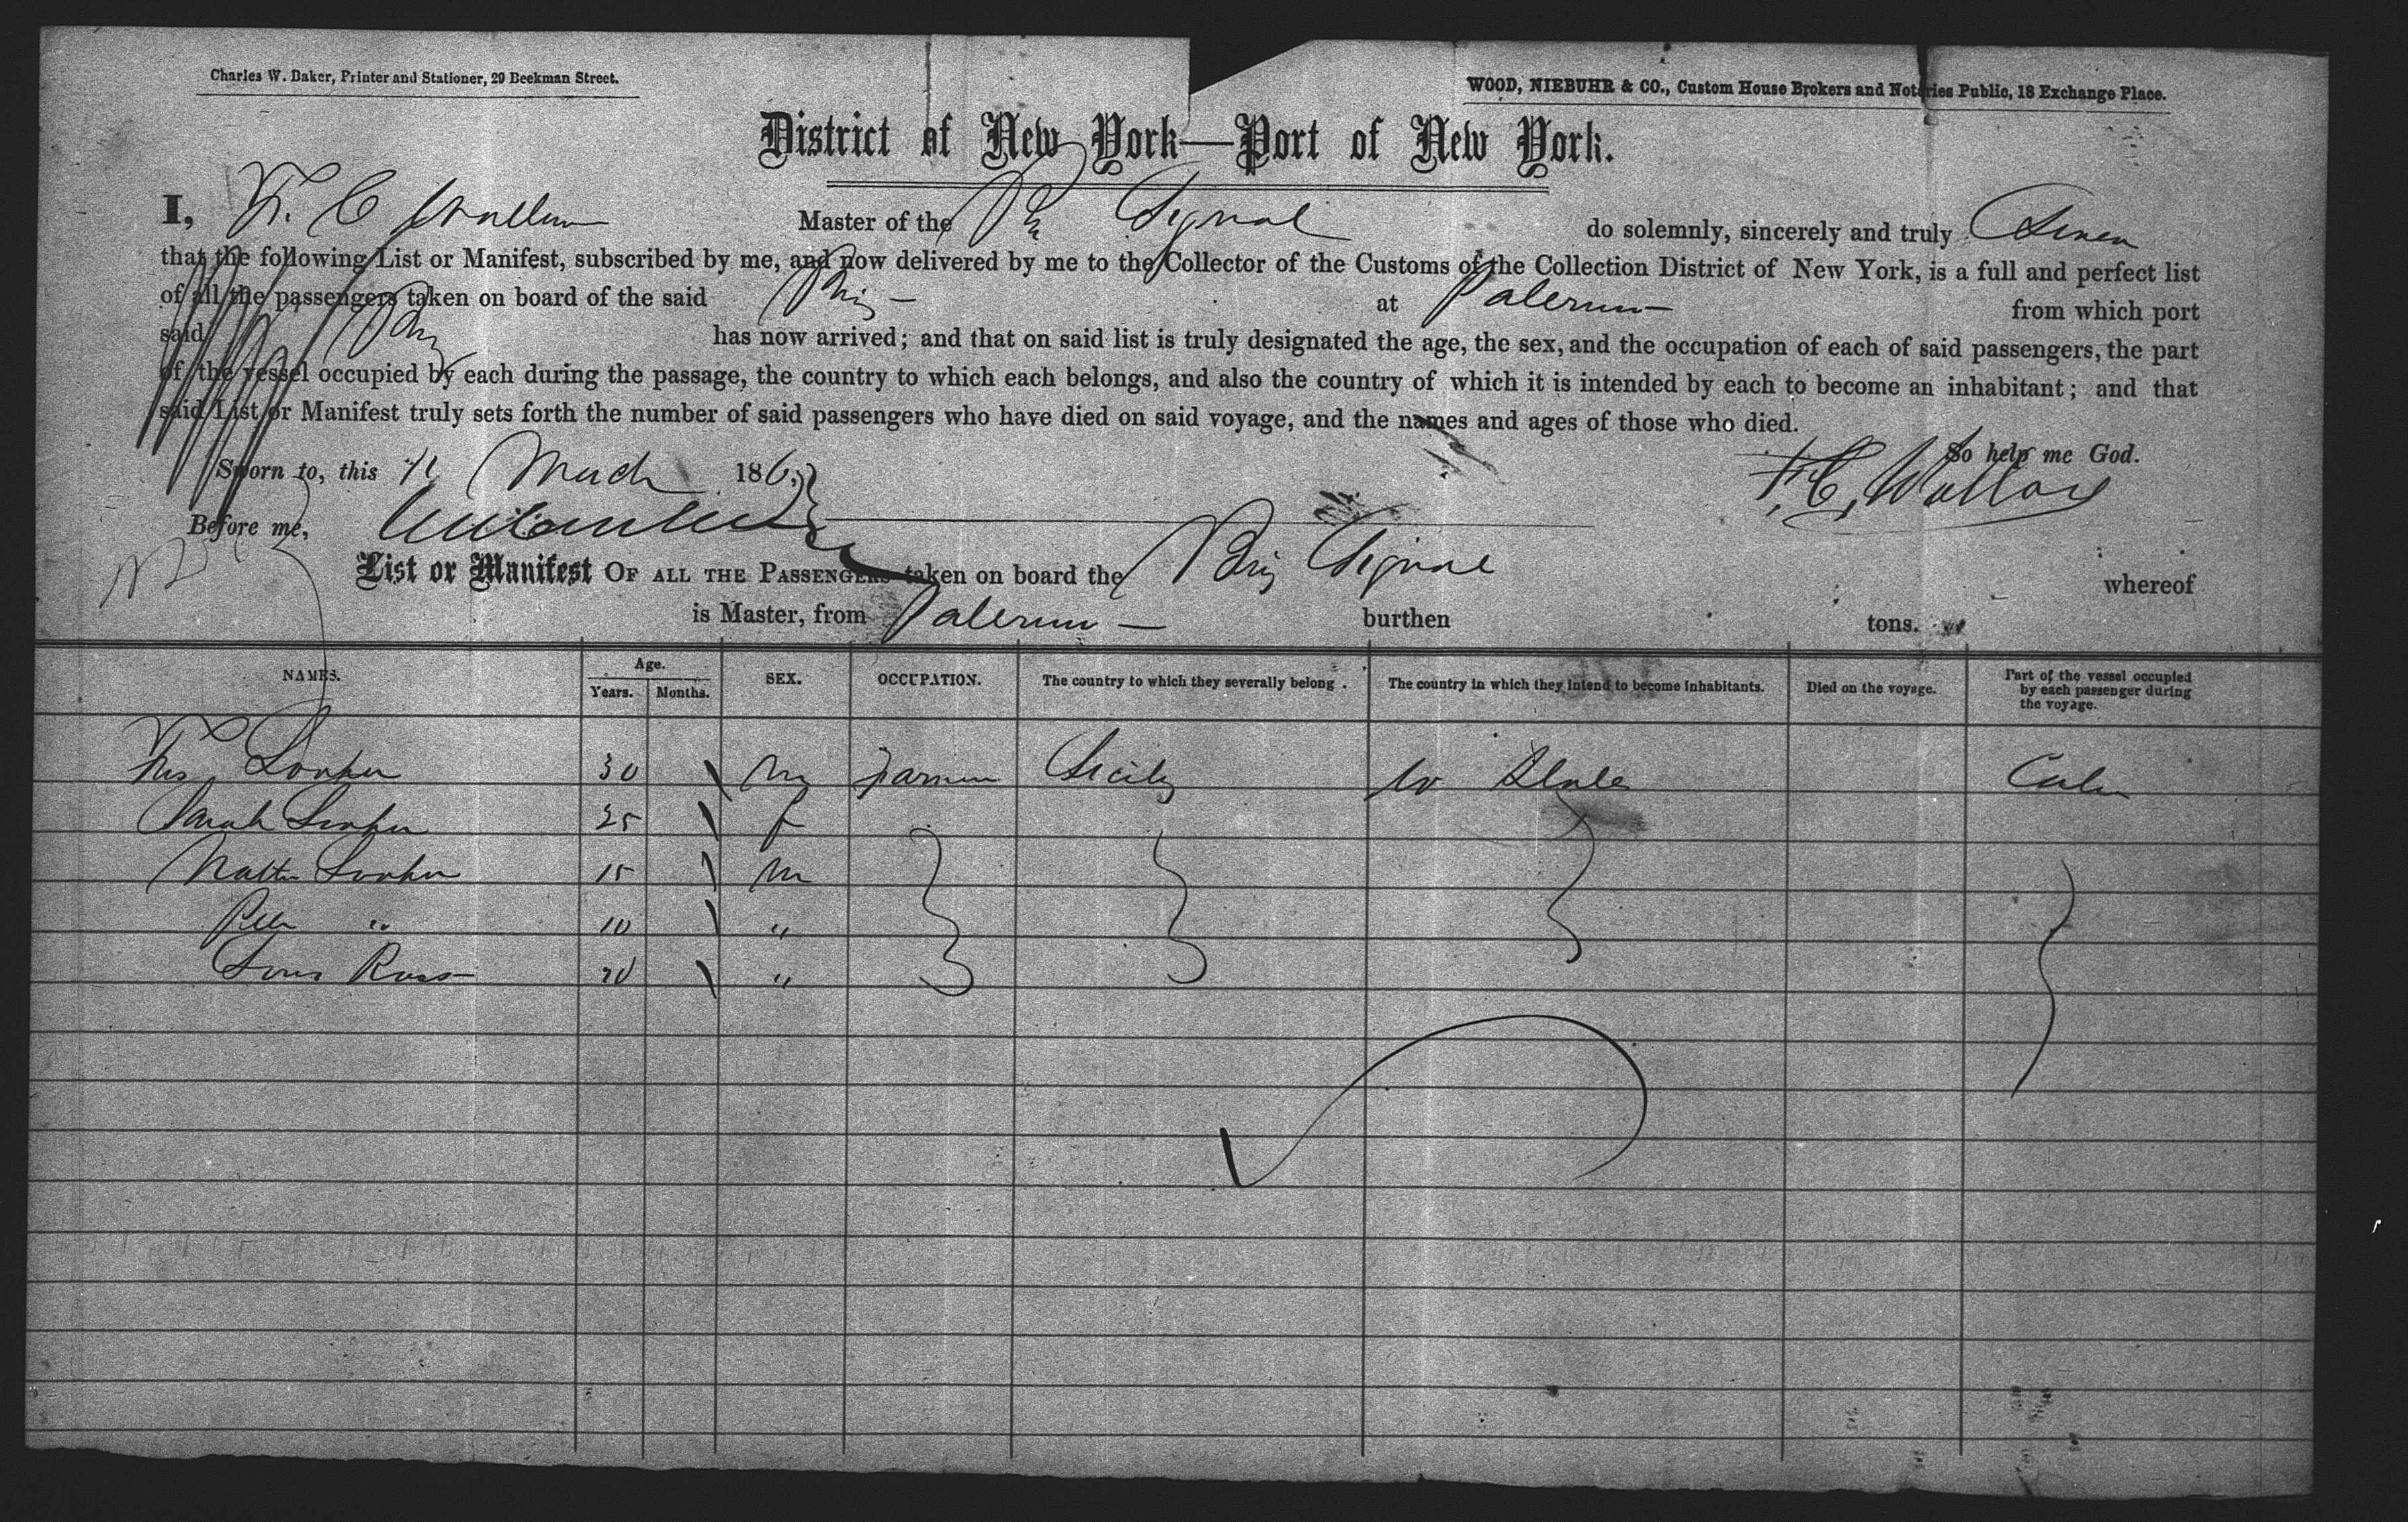 Charles W. Baker, Printer and Stationer, 29 Beekman Street.
WOOD, NIEBUHR & CO., Custom House Brokers and Notaries Public, 18 Exchange Place.
District of New York—Port of New York.
I, F. C Master of the Signal do solemnly, sincerely and truly
that the following List or Manifest, subscribed by me, and now delivered by me to the Collector of the Customs of the Collection District of New York, is a full and perfect list
of all the passengers taken on board of the said Brig — at Palermo from which port
said Brig has now arrived; and that on said list is truly designated the age, the sex, and the occupation of each of said passengers, the part
of the vessel occupied by each during the passage, the country to which each belongs, and also the country of which it is intended by each to become an inhabitant; and that
said List or Manifest truly sets forth the number of said passengers who have died on said voyage, and the names and ages of those who died.
So help me God.
Sworn to, this 11 March 186
F. C. Wallace
Before me,
List or Manifest OF ALL THE PASSENGERS taken on board the Brig Signal whereof
is Master, from Palermo — burthen tons.
NAMES. Age. Years. Months. SEX. OCCUPATION. The country to which they severally belong. The country in which they intend to become inhabitants. Died on the voyage. Part of the vessel occupied by each passenger during the voyage.
30 m Farmer Sicily
Sarah 25 f
15 m
" 10 "
Ross 20 "